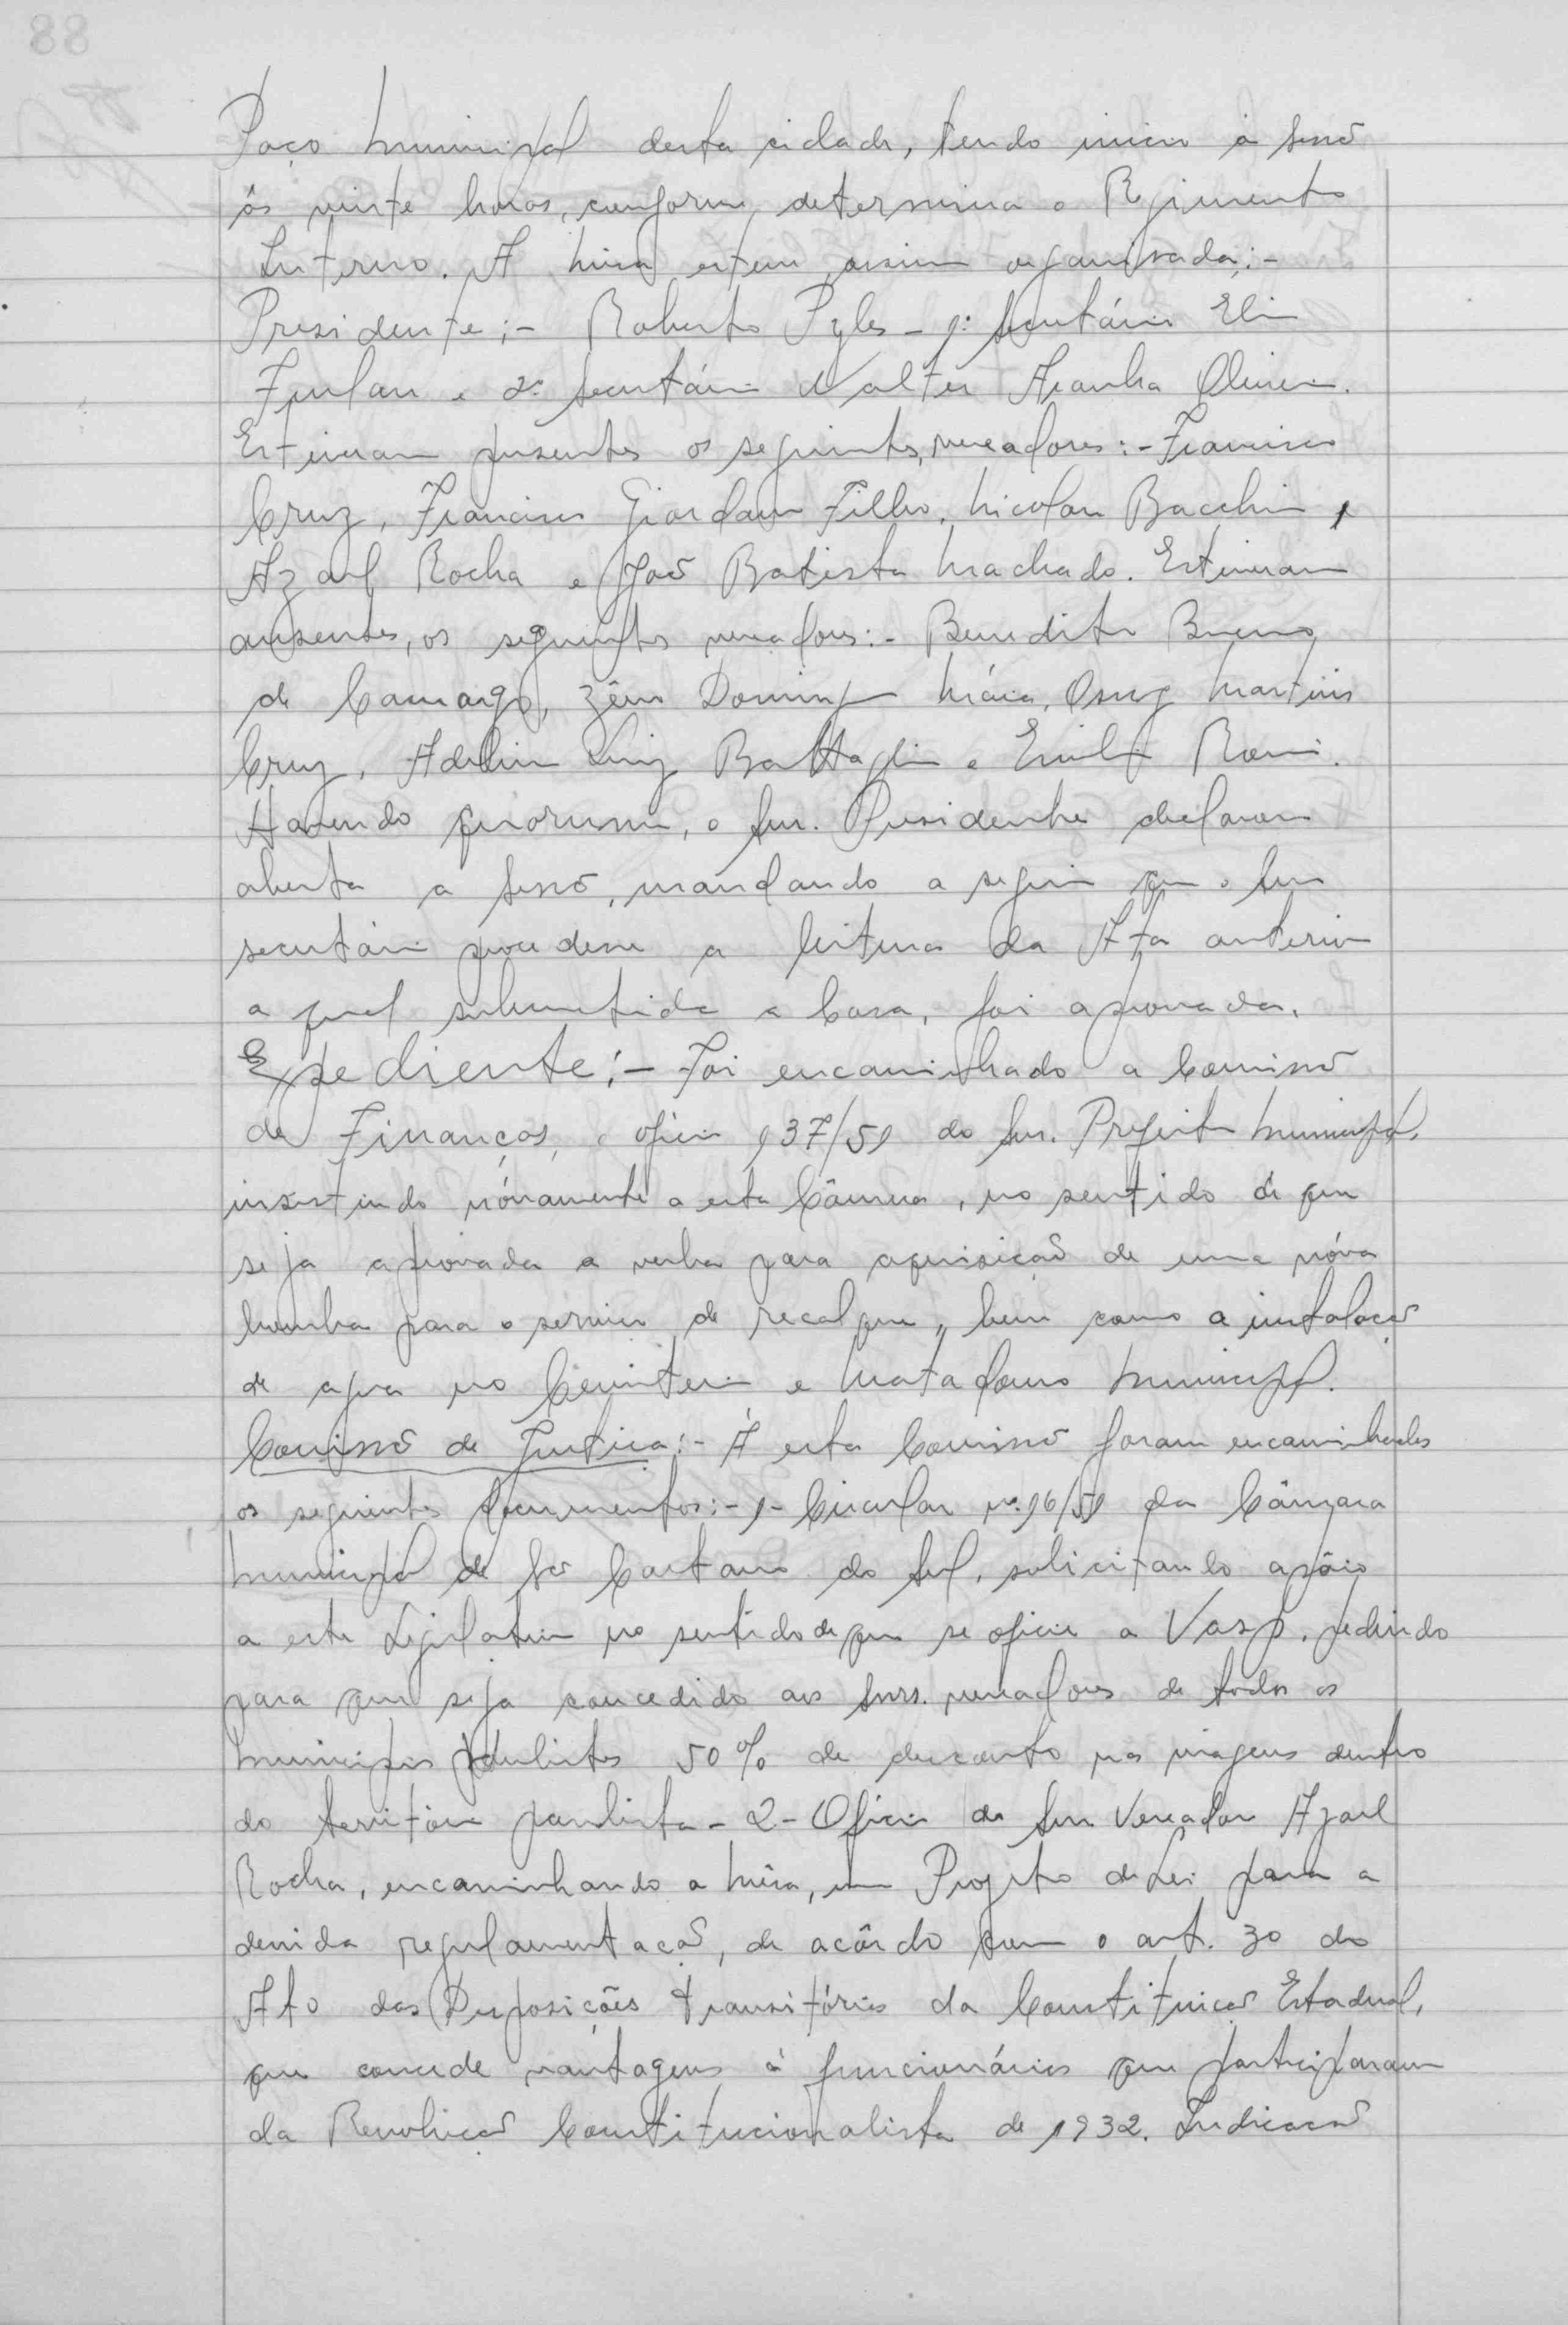 88
Paço Municipal desta cidade, tendo inicio á sessõ
ás vinte horas, conforme determina o Rejimento
Interno. A Mesa esteve assim organisada:-
Presidente:- Roberto Pyles - 1º Secretário Elio
Furlan e 2º Secretário Walter Aranha Oliveira.
Estiveram presentes os seguintes, vereadores:- Francisco
Cruz, Francisco Giordano Filho, Nicolau Bacchin,
Azael Rocha e Joaõ Batista Machado. Estiveram
ausentes, os seguintes vereadores:- Benedito Bueno
de Camargo, Domingos Osney Martins
Cruz, Adelino Luiz Battaglin e Emilio Romi.
Havendo quorum, o Snr. Presidente declarou
aberta a sessõ, mandando a seguir que o Snr
secretário procedesse a leitura da Ata anterior
a qual submetida a Casa, foi aprovada.
Expediente:- Foi encaminhado a Comissõ
de Finanças, o oficio 137/51 do Snr. Prefeito Municipal,
insistindo nóvamente a esta Câmara, no sentido de que
seja aprovada a verba para aquisicaõ de uma nóva
bomba para o servico de recalque, bem como a instalacaõ
de agua no Cemiterio e Matadouro Municipal.
Comissõ de Justica:- Á esta Comissõ foram encaminhados
os seguintes documentos:- 1- Circular nº. 16/51 da Câmara
Municipal de Sõ Caetano do Sul, solicitando apôio
a este Legislativo no sentido de que se oficie a Vasp, pedindo
para que seja concedido aos Snrs. vereadores de todos os
Municipios paulistas 50% de desconto nas viagens dentro
do território paulista - 2- Oficio do Snr. Vereador Azael
Rocha, encaminhando a Mêsa, um Projeto de Lei para a
devida regulamentacaõ, de acôrdo com o art. 30 do
Ato das Disposições transitórias da Constituicaõ Estadual,
que concede vantagens á funcionários que participaram
da Revolucaõ Constitucionalista de 1932. Indicacaõ